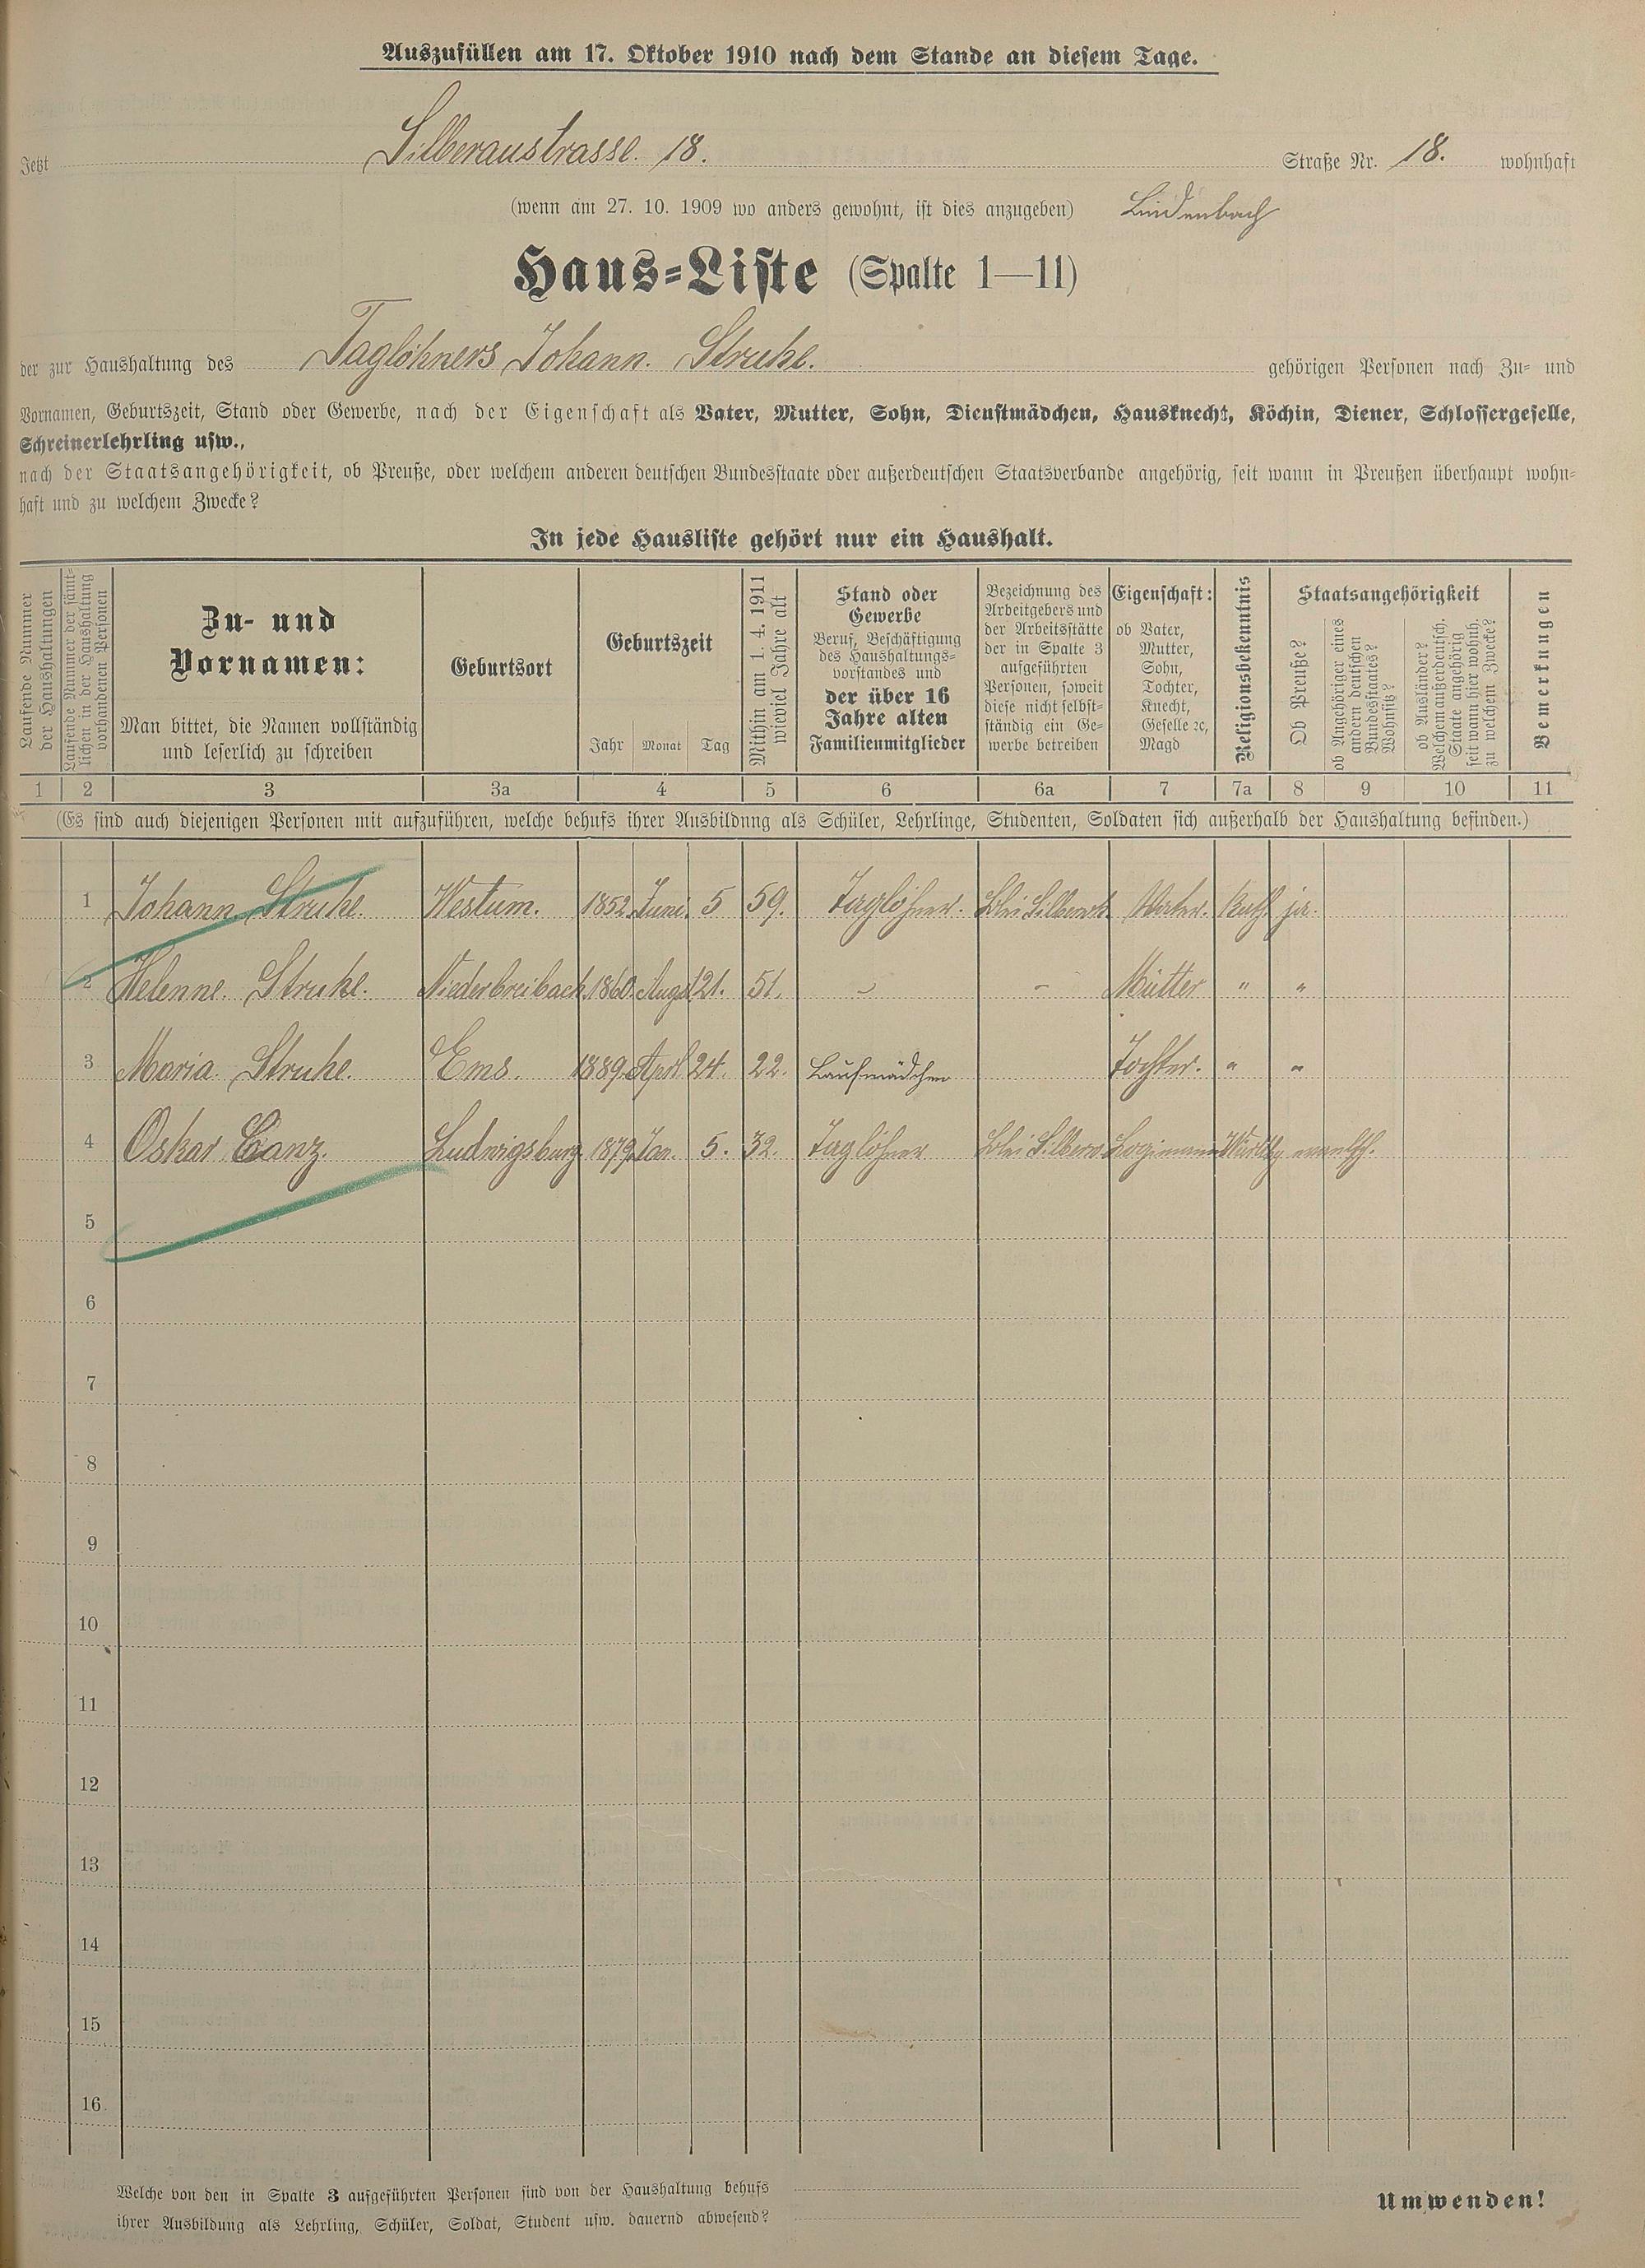 Auszufüllen am 17. Oktober 1910 nach dem Stande an diesem Tage.
Jetzt Silberaustrasse. 18. Straße Nr. 18. wohnhaft
(wenn am 27. 10. 1909 wo anders gewohnt, ist dies anzugeben) Lindenbach
Haus-Liste (Spalte 1—11)
der zur Haushaltung des Taglöhners Johann. Struhe. gehörigen Personen nach Zu- und
Vornamen, Geburtszeit, Stand oder Gewerbe, nach der Eigenschaft als Vater, Mutter, Sohn, Dienstmädchen, Hausknecht, Köchin, Diener, Schlossergeselle,
Schreinerlehrling usw.,
nach der Staatsangehörigkeit, ob Preuße, oder welchem anderen deutschen Bundesstaate oder außerdeutschen Staatsverbande angehörig, seit wann in Preußen überhaupt wohn-
haft und zu welchem Zwecke?
In jede Hausliste gehört nur ein Haushalt.
Laufende Nummer
der Haushaltungen
Laufende Nummer der sämt-
lichen in der Haushaltung
vorhandenen Personen
Zu- und
Vornamen:
Man bittet, die Namen vollständig
und leserlich zu schreiben
Geburtsort
Geburtszeit
Jahr Monat Tag
Mithin am 1. 4. 1911
wieviel Jahre alt
Stand oder
Gewerbe
Beruf, Beschäftigung
des Haushaltungs-
vorstandes und
der über 16
Jahre alten
Familienmitglieder
Bezeichnung des
Arbeitgebers und
der Arbeitsstätte
der in Spalte 3
aufgeführten
Personen, soweit
diese nicht selbst-
ständig ein Ge-
werbe betreiben
Eigenschaft:
ob Vater,
Mutter,
Sohn,
Tochter,
Knecht,
Geselle ꝛc,
Magd
Religionsbekenntnis
Staatsangehörigkeit
Ob Preuße?
ob Angehöriger eines
andern deutschen
Bundesstaates?
Wohnsitz?
ob Ausländer?
Welchem außerdeutsch.
Staate angehörig
seit wann hier wohnh.
zu welchem Zwecke?
Bemerkungen
1 2 3 3a 4 5 6 6a 7 7a 8 9 10 11
(Es sind auch diejenigen Personen mit aufzuführen, welche behufs ihrer Ausbildung als Schüler, Lehrlinge, Studenten, Soldaten sich außerhalb der Haushaltung befinden.)
1 Johann. Struhe. Westum. 1852. Juni. 5 59. Taglöhner. Vater. Kath ja.
2 Helenne. Struhe. Niederbreibach. 1860. Augst 21. 51. - - Mütter " "
3 Maria. Struhe. Ems. 1889. April 24. 22. Laufmädchen Tochter. " "
4 Oskar Canz. Ludwigsburg. 1879. Jan. 5. 32. Taglöhner
5
6
7
8
9
10
11
12
13
14
15
16
Welche von den in Spalte 3 aufgeführten Personen sind von der Haushaltung behufs
ihrer Ausbildung als Lehrling, Schüler, Soldat, Student usw. dauernd abwesend?
Umwenden!